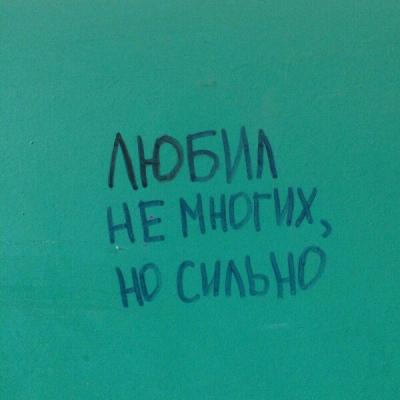 ЛЮБИЛ
НЕ МНОГИХ,
НО СИЛЬНО